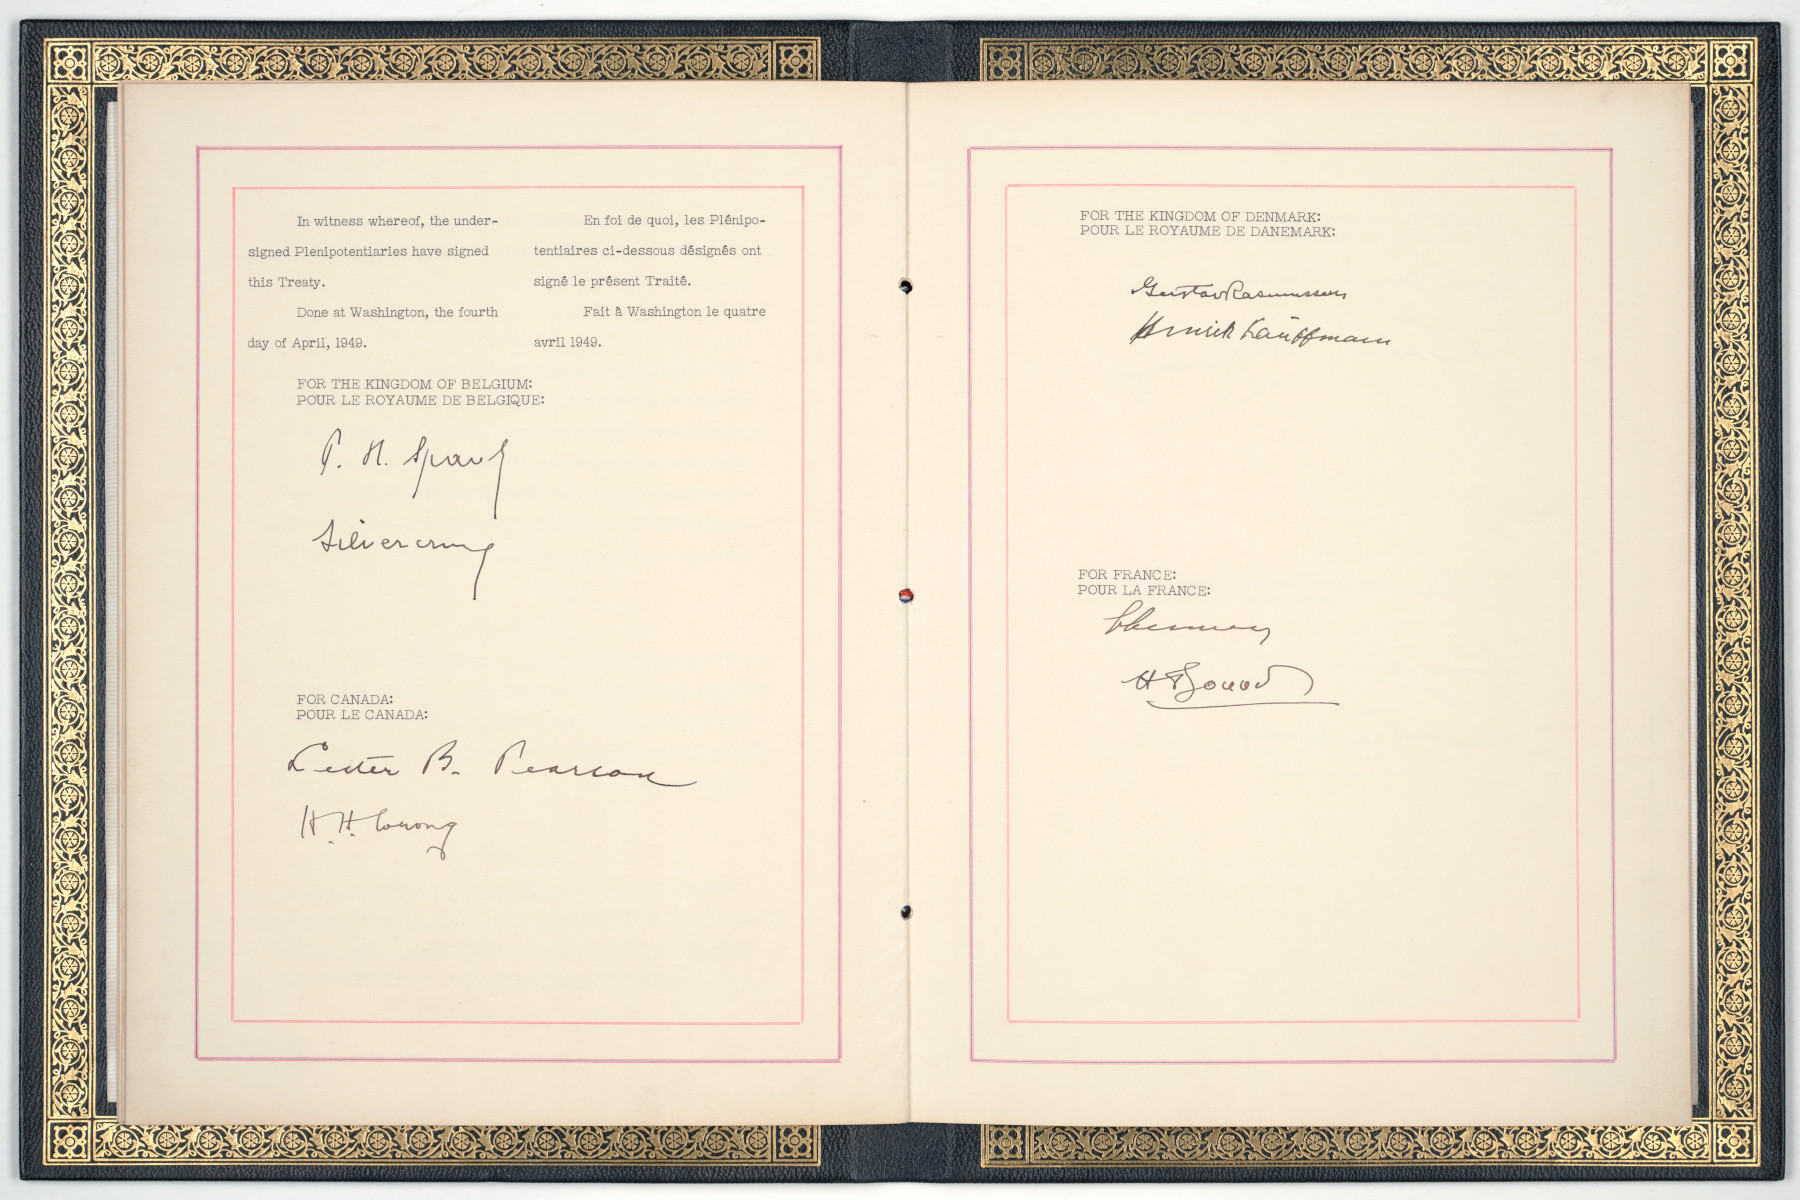 In witness whereof, the under-
signed Plenipotentiaries have signed
this Treaty.
Done at Washington, the fourth
day of April, 1949.
En foi de quoi, les Plénipo-
tentiaires ci-dessous désignés ont
signé le présent Traité.
Fait à Washington le quatre
avril 1949.
FOR THE KINGDOM OF BELGIUM:
POUR LE ROYAUME DE BELGIQUE:
P. H. Spaak
Silvercruys
FOR CANADA:
POUR LE CANADA:
Lester B. Pearson
H. H. Wrong
FOR THE KINGDOM OF DENMARK:
POUR LE ROYAUME DE DANEMARK:
Gustav Rasmussen
Henrik Kauffmann
FOR FRANCE:
POUR LA FRANCE:
Schuman
H Bonnet